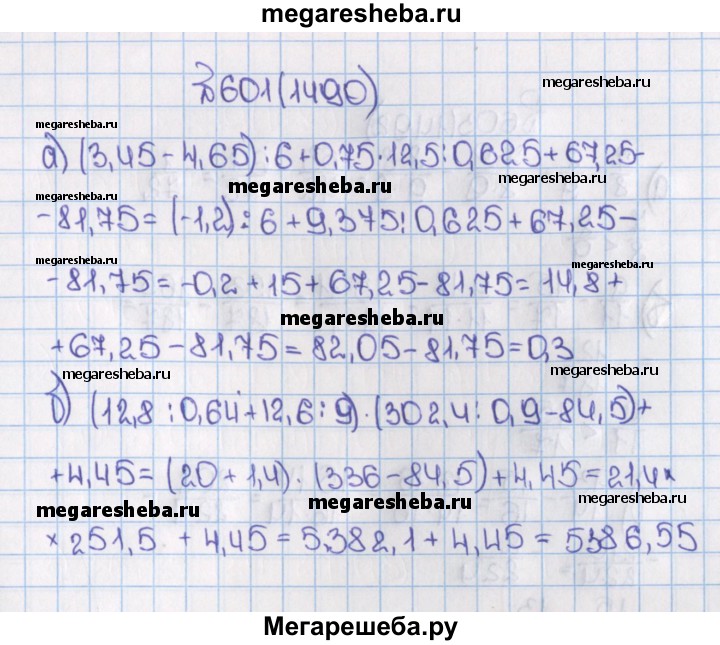 megaresheba.ru
№601(1490)
megaresheba.ru
megaresheba.ru
а) (3,45-4,65):6+0,75·12,5:0,625+67,25-
megaresheba.ru
megaresheba.ru
-81,75=(-1,2):6+9,375:0,625+67,25-
megaresheba.ru
megaresheba.ru
-81,75=-0,2+15+67,25-81,75=14,8+
megaresheba.ru
+67,25-81,75=82,05-81,75=0,3
megaresheba.ru
megaresheba.ru
б) (12,8:0,64+12,6:9)·(302,4:0,9-84,5)+
megaresheba.ru
+4,45=(20+1,4)·(336-84,5)+4,45=21,4×
megaresheba.ru
megaresheba.ru
megaresheba.ru
×251,5+4,45=5382,1+4,45=5386,55
Мегарешеба.ру